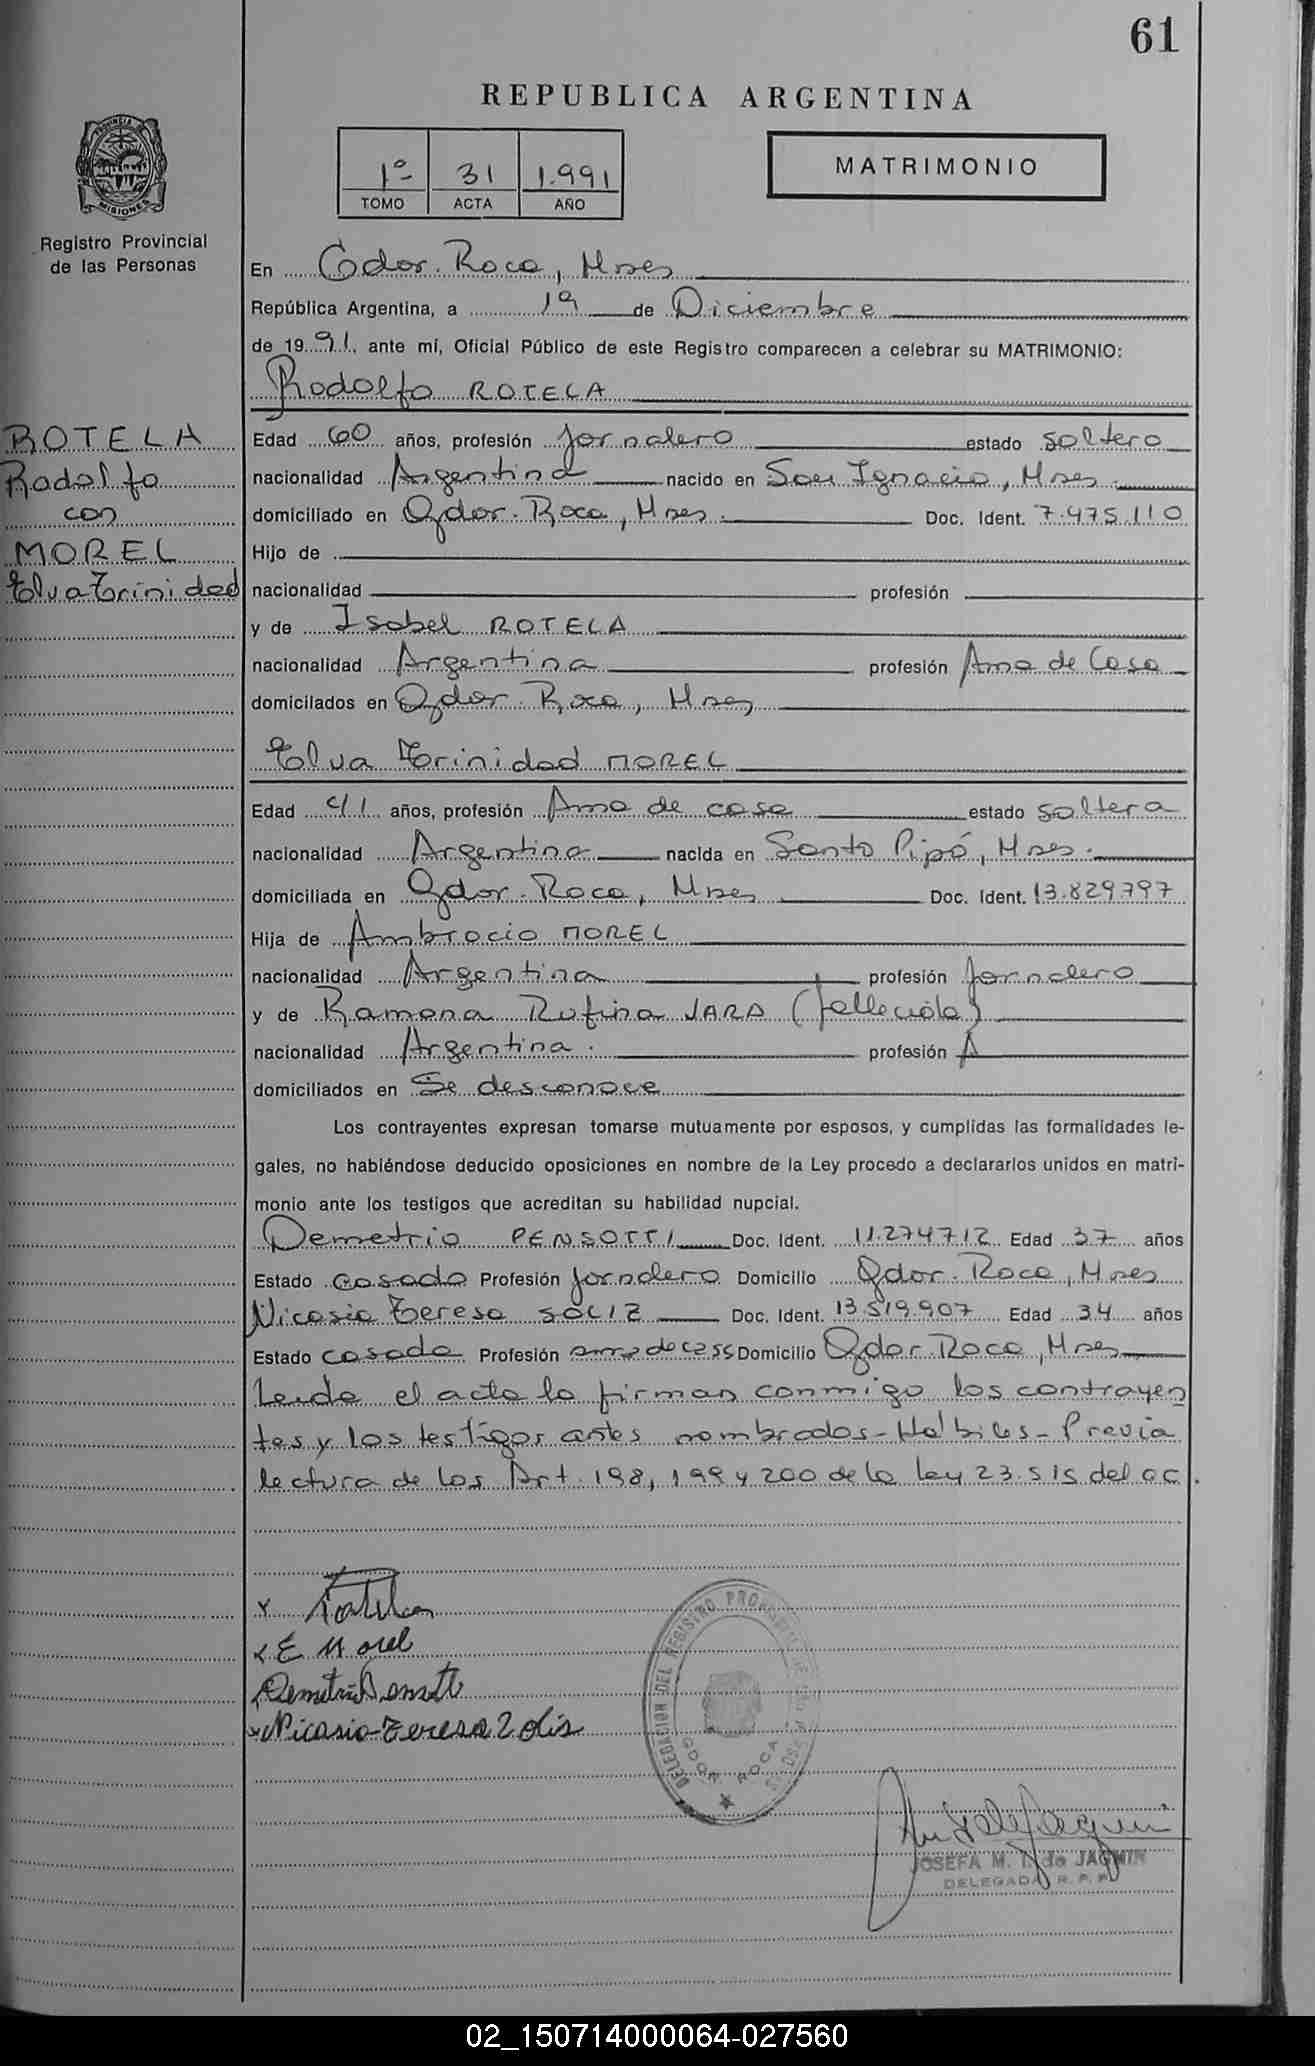 61
REPUBLICA ARGENTINA
1º 31 1.991
TOMO ACTA AÑO
MATRIMONIO
PROVINCIA DE
MISIONES
Registro Provincial
de las Personas
En Gdor. Roca, Mnes
República Argentina, a 19 de Diciembre
de 1991, ante mí, Oficial Público de este Registro comparecen a celebrar su MATRIMONIO:
Rodolfo ROTELA
ROTELA
Rodolfo
con
MOREL
Elva Trinidad
Edad 60 años, profesión Jornalero estado soltero
nacionalidad Argentina nacido en San Ignacio, Mnes.
domiciliado en Gdor. Roca, Mnes. Doc. Ident. 7.475.110
Hijo de
nacionalidad profesión
y de Isabel ROTELA
nacionalidad Argentina profesión Ama de Casa
domicilados en Gdor. Roca, Mnes
Elva Trinidad MOREL
Edad 41 años, profesión Ama de casa estado soltera
nacionalidad Argentina nacida en Santo Pipó, Mnes.
domiciliada en Gdor. Roca, Mnes Doc. Ident. 13.829.797
Hija de Ambrocio MOREL
nacionalidad Argentina profesión Jornalero
y de Ramona Rufina JARA (fallecida)
nacionalidad Argentina. profesión
domiciliados en Se desconoce
Los contrayentes expresan tomarse mutuamente por esposos, y cumplidas las formalidades le-
gales, no habiéndose deducido oposiciones en nombre de la Ley procedo a declararlos unidos en matri-
monio ante los testigos que acreditan su habilidad nupcial.
Demetrio PENSOTTI Doc. Ident. 11.274712 Edad 37 años
Estado casado Profesión Jornalero Domicilio Gdor. Roca, Mnes
Nicasia Teresa SOLIZ Doc. Ident. 13.519.907 Edad 34 años
Estado casada Profesión ama de casa Domicilio Gdor. Roca, Mnes
Leida el acta la firman conmigo los contrayen
tes y los testigos antes nombrados - Habiles - Previa
lectura de los Art. 198, 199 y 200 de la ley 23.515 del CC.
x
x E Morel
x Nicasia Teresa Zolis
DELEGACION DEL REGISTRO PROVINCIAL
GDOR ROCA
JOSEFA M. T. de JAQMIN
DELEGADA R. P. P.
02_150714000064-027560